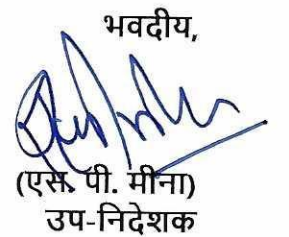 भवदीय,
(एस. पी. मीना)
उप-निदेशक